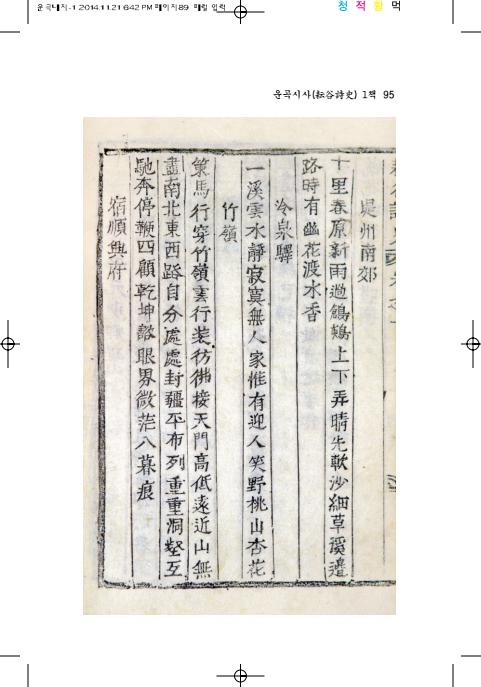 운곡대지-1 2014.11.21 6:42 PM 페이지89 매일 입력
청 적 황 먹
운곡시사(耘谷詩史) 1책 95
堤州南郊
十里春原新雨過鶬鶊上下弄晴光軟沙細草溪邊
路時有幽花渡水香
冷泉驛
一溪雲水靜寂寞無人家惟有迎人笑野桃山杏花
竹嶺
策馬行穿竹嶺雲行裝彷彿接天門高低遠近山無
盡南北東西路自分處處封疆平布列重重洞壑互
馳奔停鞭四顧乾坤豁眼界微茫入暮痕
宿順興府